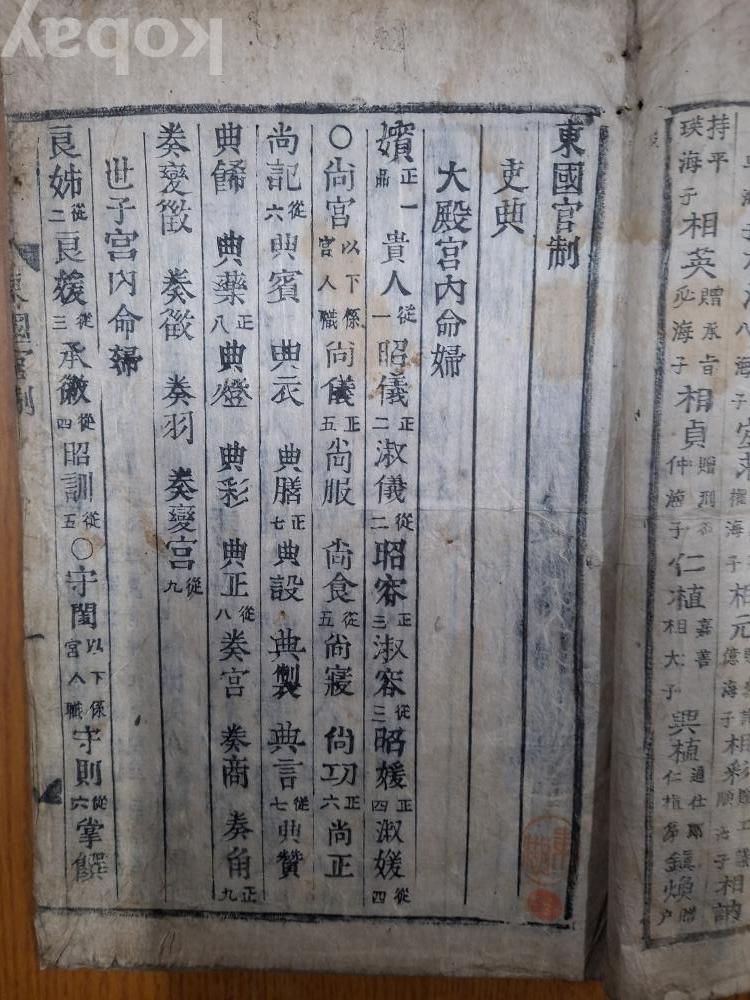 kobay
東國官制
吏典
大殿宮內命婦
嬪正一品 貴人從一 昭儀正二 淑儀從二 昭容正三 淑容從三 昭媛正四 淑媛從四
○尙宮以下係宮人職 尙儀正五 尙服 尙食從五 尙寢 尙功正六 尙正
尙記從六 典賓 典衣 典膳正七 典設 典製 典言從七 典贊
典飾 典藥正八 典燈 典彩 典正從八 奏宮 奏商 奏角正九
奏變徵 奏徵 奏羽 奏變宮從九
世子宮內命婦
良娣從二 良媛從三 承徽從四 昭訓從五 ○守閨以下係宮人職 守則從六 掌饌
東國官制
持平
瑛海子相英贈承旨
必海子相貞贈刑
仲海子仁植嘉善
相大子興植通仕郎
仁植 鎭煥贈戶